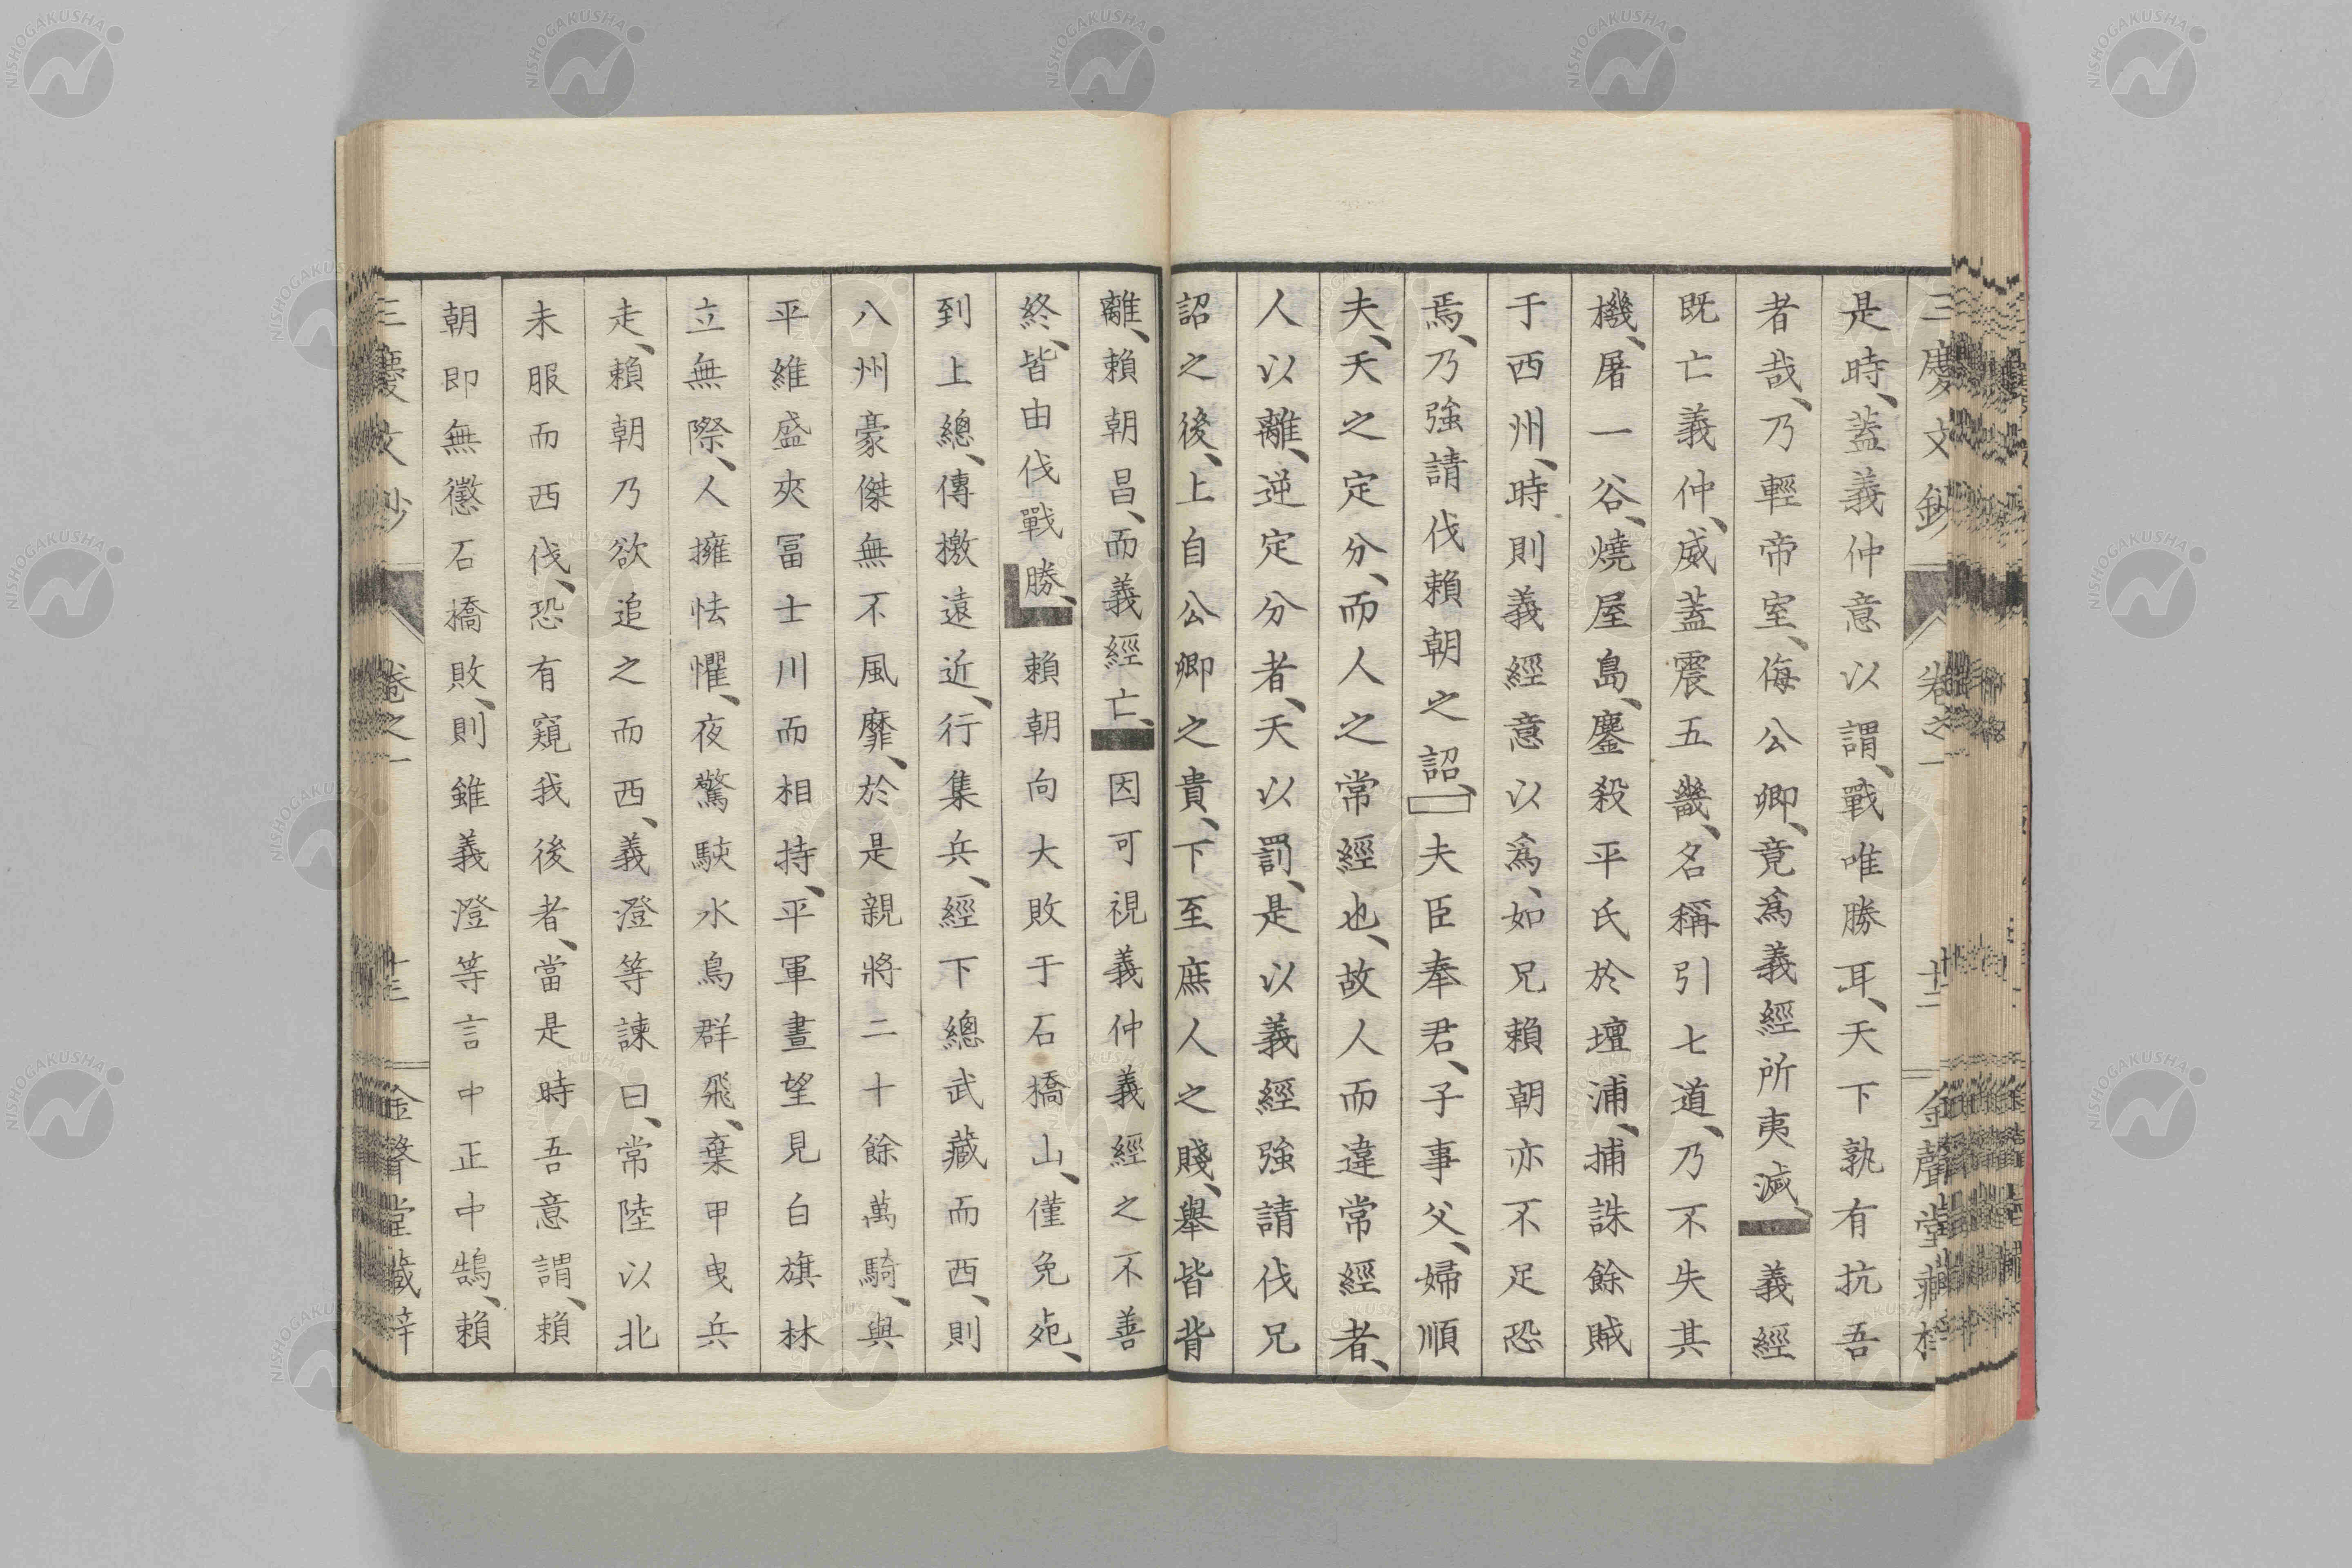 三慶文鈔 卷之一 十二 金聲堂藏梓
是時、蓋義仲意以謂、戰唯勝耳、天下孰有抗吾
者哉、乃輕帝室、侮公卿、竟爲義經所夷滅、義經
既亡義仲、威蓋震五畿、名稱引七道、乃不失其
機、屠一谷、燒屋島、鏖殺平氏於壇浦、捕誅餘賊
于西州、時則義經意以爲、如兄賴朝亦不足恐
焉、乃強請伐賴朝之詔、夫臣奉君、子事父、婦順
夫、天之定分、而人之常經也、故人而違常經者、
人以離、逆定分者、天以罰、是以義經強請伐兄
詔之後、上自公卿之貴、下至庶人之賤、舉皆背
離、賴朝昌、而義經亡、因可視義仲義經之不善
終、皆由伐戰勝、賴朝向大敗于石橋山、僅免死、
到上總、傳檄遠近、行集兵、經下總武藏而西、則
八州豪傑無不風靡、於是親將二十餘萬騎、與
平維盛夾富士川而相持、平軍晝望見白旗林
立無際、人擁怯懼、夜驚駛水鳥群飛、棄甲曳兵
走、賴朝乃欲追之而西、義澄等諫曰、常陸以北
未服而西伐、恐有窺我後者、當是時吾意謂、賴
朝即無懲石橋敗、則雖義澄等言中正中鵠、賴
三慶文鈔 卷之一 十三 金聲堂藏梓
NISHOGAKUSHA